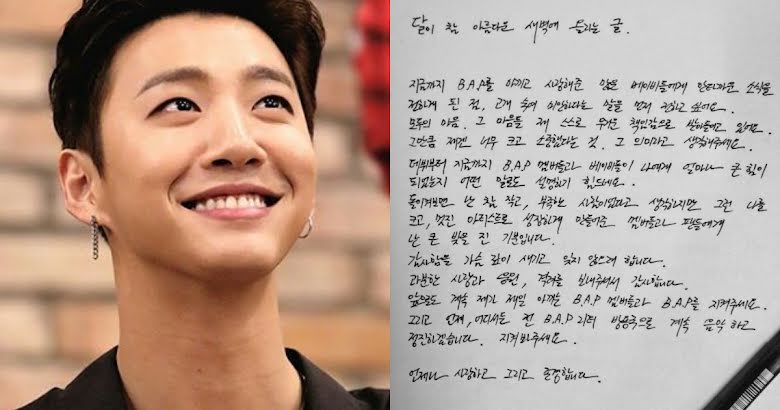 달이 참 아름다운 새벽에 올리는 글.
지금까지 B.A.P를 아끼고 사랑해준 많은 베이비들에게 안타까운 소식을
전하게 된 점, 고개 숙여 미안하다는 말을 먼저 전하고 싶어요.
모두의 마음. 그 마음들 제 스스로 무거운 책임감으로 받아들이고 있어요.
그만큼 제겐 너무 크고 소중합니다는 것. 그 의미라고 생각해주세요.
데뷔부터 지금까지 B.A.P 멤버들과 베이비들이 나에게 얼마나 큰 힘이
되었는지 어떤 말로도 설명하기 힘드네요.
돌이켜보면 난 참 작고, 부족한 사람이었다고 생각하지만 그런 나를
크고, 멋진 아티스트로 성장하게 만들어준 멤버들과 팬들에게
난 큰 빚을 진 기분입니다.
감사함을 가슴 깊이 새기고 잊지 않으려 합니다.
과분한 사랑과 응원, 격려를 보내주셔서 감사합니다.
앞으로도 계속 제가 제일 아끼는 B.A.P 멤버들과 B.A.P를 지켜주세요.
그리고 언제, 어디서든 전 B.A.P 리더 방용국으로 계속 음악하고
정진하겠습니다. 지켜봐주세요.
언제나 사랑하고 그리고 존경합니다.